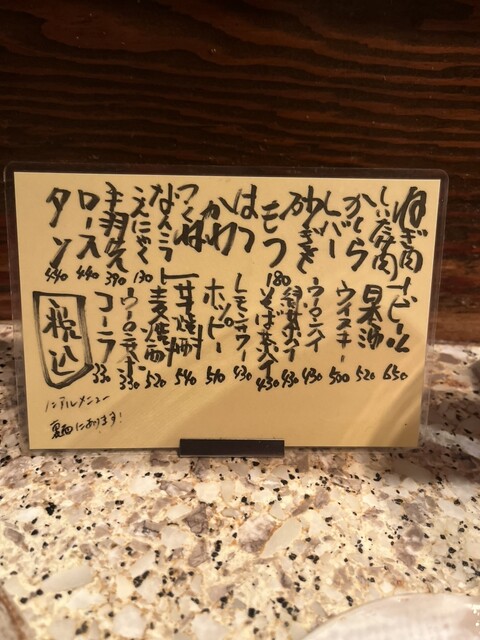 ねぎ肉
しいたけ肉
かしら
レバー
砂ぎも
もつ
はつ
かわ
つくね
なんこつ
こんにゃく
手羽先
ロース
タン
180
130
390
440
440
ビール 650
果汁 520
ウイスキー 500
ウーロンハイ 430
緑茶ハイ 430
そば茶ハイ 430
レモンサワー 430
ホッピー 510
芋焼酎 540
麦焼酎 520
ウーロン茶 330
コーラ 330
税込
裏面にあります!